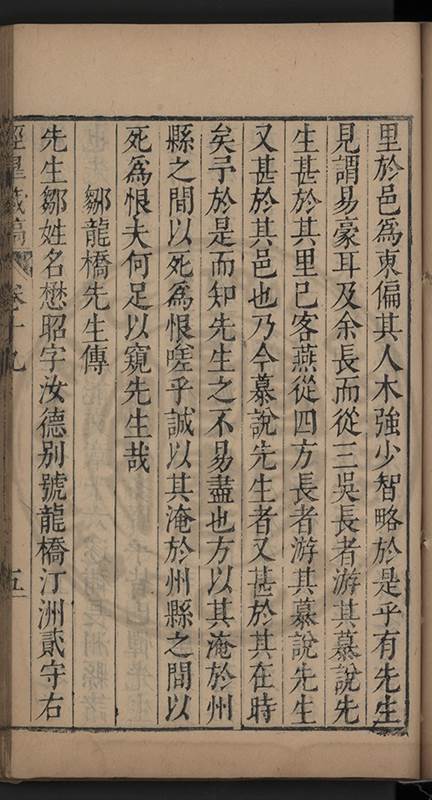 里於邑爲東偏其人木強少智略於是乎有先生
見謂易豪耳及余長而從三吳長者游其慕說先
生甚於其里已客燕從四方長者游其慕說先生
又甚於其邑也乃今慕說先生者又甚於其在時
矣予於是而知先生之不易盡也方以其淹於州
縣之間以死爲恨嗟乎誠以其淹於州縣之間以
死爲恨夫何足以窺先生哉
鄒龍橋先生傳
先生鄒姓名懋昭字汝德別號龍橋汀洲貳守右
卷十九
五